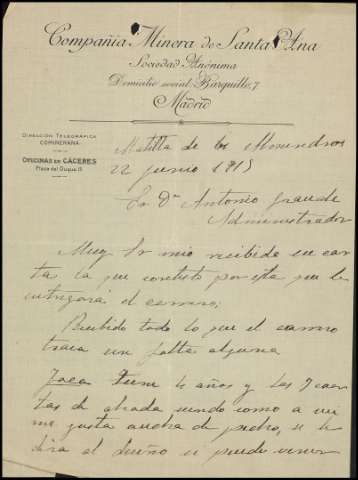 Compañia Minera de Santa Ana
Sociedad Anónima
Domicilio social: Barquillo, 7
Madrid
DIRECCIÓN TELEGRÁFICA
COMINERANA
OFICINAS EN CÁCERES
Plaza del Duque 11
Matilla de los
22 junio 1915
Sr Dn Antonio
Administrador
Muy Sr mio recibido su car
ta la que contesto por esta que le
entregará el carrero;
Recibido todo lo que el carrero
traia sin falta alguna
Jaca tiene 4 años y las 7 cuar
tas de alzada siendo como a mi
me gusta ancha de pecho, se le
dira al dueño si puede venir